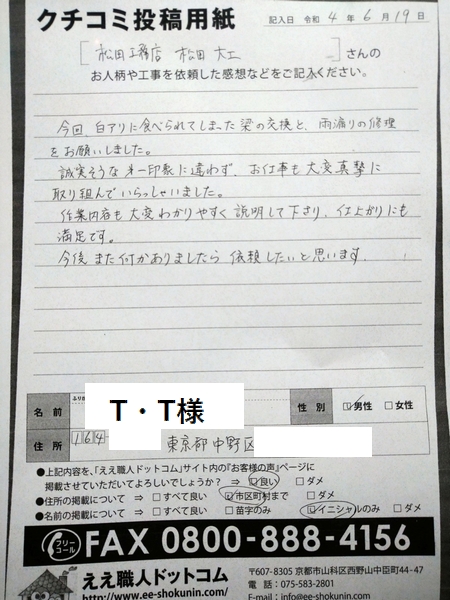 クチコミ投稿用紙
記入日 令和 4 年 6 月 19 日
[松田工務店 松田 大工]さんの
お人柄や工事を依頼した感想などをご記入ください。
今回、白アリに食べられてしまった梁の交換と、雨漏りの修理
をお願いしました。
誠実そうな第一印象に違わず、お仕事も大変真摯に
取り組んでいらっしゃいました。
作業内容も大変わかりやすく説明して下さり、仕上がりにも
満足です。
今後また何かありましたら依頼したいと思います。
名前 T・T様 性別 ☑男性 □女性
住所 164 東京都中野区
●上記内容を、「ええ職人ドットコム」サイト内の「お客様の声」ページに
掲載させていただいてよろしいでしょうか? ⇒ ☑良い □ダメ
●住所の掲載について ⇒ □すべて良い ☑市区町村まで □ダメ
●名前の掲載について ⇒ □すべて良い □苗字のみ ☑イニシャルのみ □ダメ
フリーコール FAX 0800-888-4156
ええ職人ドットコム
http://www.ee-shokunin.com/
〒607-8305 京都市山科区西野山中臣町44-47
電話：075-583-2801
E-mail：info@ee-shokunin.com